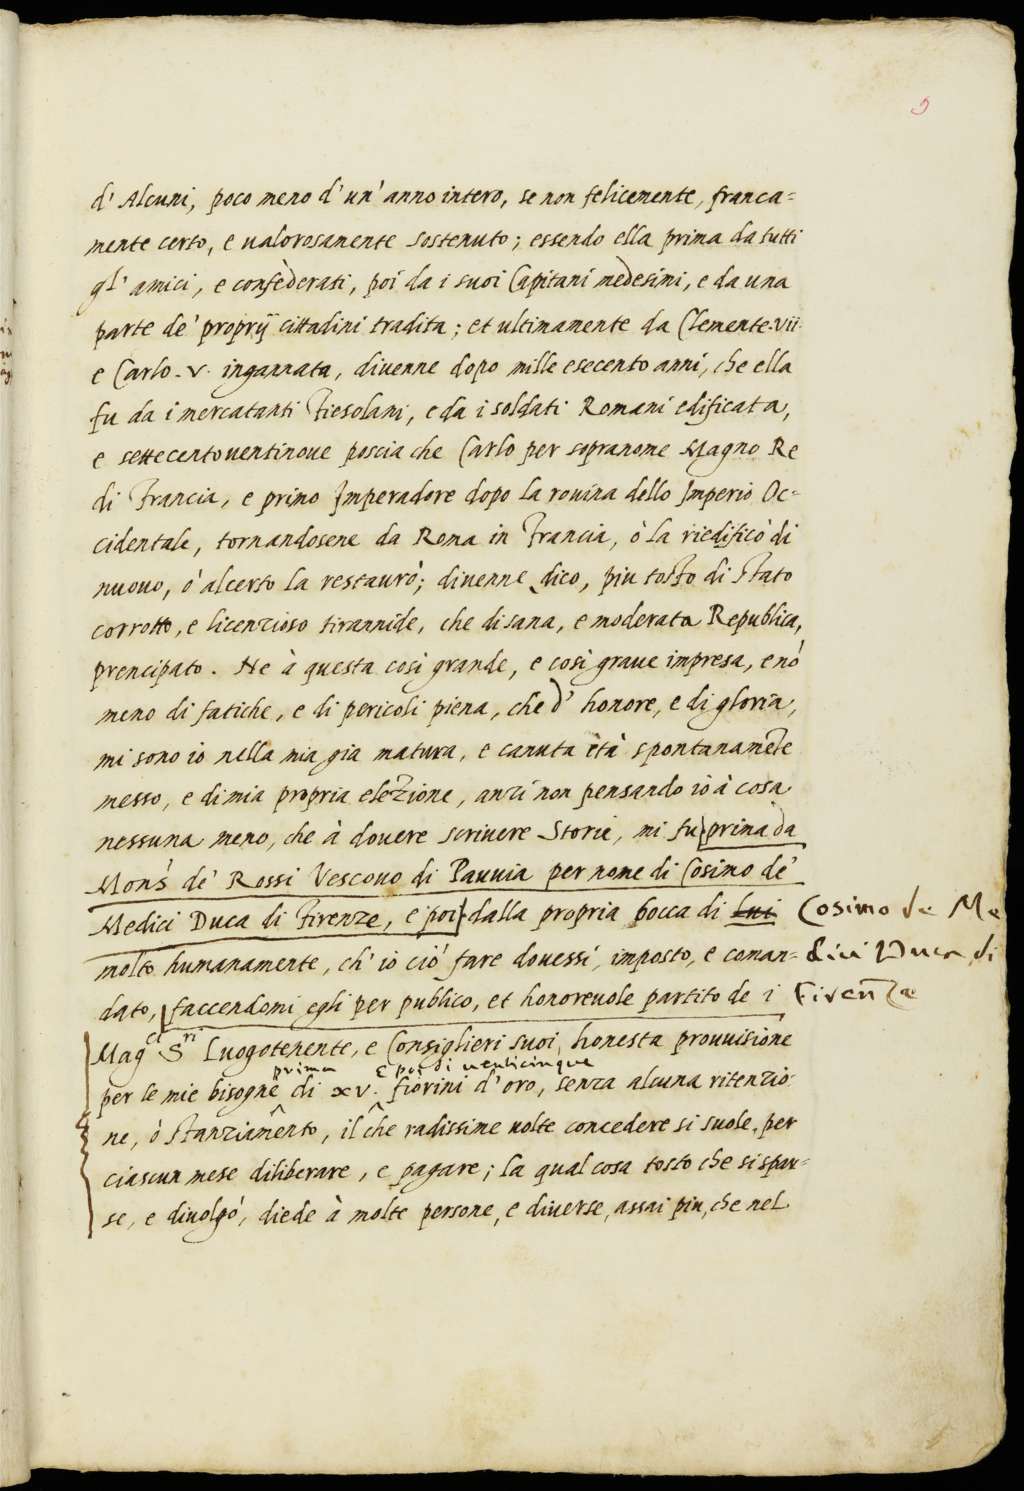 9
d' Alcuni, poco meno d' un' anno intero, se non felicemente, franca=
mente certo, e ualorosamente sostenuto; essendo ella prima da tutti
gl' amici, e confederati, poi da i suoi Capitani medesimi, e da una
parte de' proprij cittadini tradita; et ultimamente da Clemente.vii.
e Carlo.v. ingannata, diuenne dopo mille e secento anni, che ella
fu da i mercatanti Fiesolani, e da i soldati Romani edificata,
e settecentouentinoue poscia che Carlo per sopranome Magno Re
di Francia, e primo Imperadore dopo la rouina dello Imperio Oc=
cidentale, tornandosene da Roma in Francia, ò la riedificò di
nuouo, ò al certo la restaurò; diuenne dico, piu tosto di stato
corrotto, e licenzioso tirannide, che di sana, e moderata Republica,
prencipato. Ne à questa così grande, e così graue impresa, e nō
meno di fatiche, e di pericoli piena, che d' honore, e di gloria,
mi sono io nella mia già matura, e canuta età spontanamēte
messo, e di mia propria elezione, anzi non pensando io à cosa
nessuna meno, che à douere scriuere Storie, mi fu prima da
Mons. de' Rossi Vescouo di Pauuia per nome di Cosimo de'
Medici Duca di Firenze, e poi dalla propria bocca di lui Cosimo de Me
molto humanamente, ch' io ciò fare douessi, imposto, e coman= dici Duca di
dato, faccendomi egli per publico, et honoreuole partito de i Firenze
Mag.ci S.ri Luogotenente, e Consiglieri suoi, honesta prouuisione
prima e poi di uenticinque
per le mie bisogne di xv. fiorini d' oro, senza alcuna ritenzio=
ne, ò stanziamento, il che radissime uolte concedere si suole, per
ciascun mese diliberare, e pagare; la qual cosa tosto che si spar=
se, e diuolgò, diede à molte persone, e diuerse, assai piu, che nel